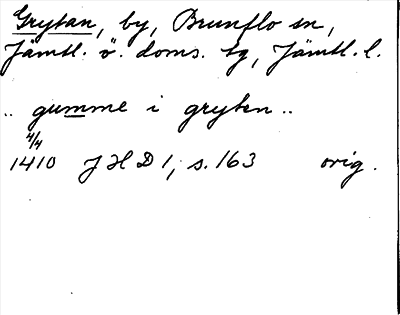 Grytan, by, Brunflo sn,
Jämtl. ö. doms. tg, Jämtl. l.
.. gumme i gryten ..
4/4
1410 JHD 1, s. 163 orig.